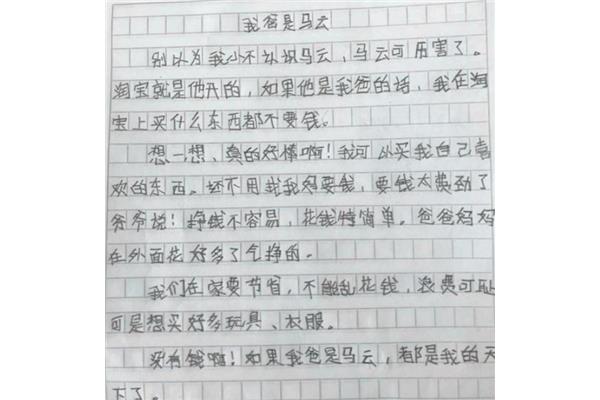 我爸是马云
别以为我小不认识马云，马云可历害了。
淘宝就是他开的，如果他是我爸的话，我在淘
宝上买什么东西都不要钱。
想一想、真的好棒啊！我可以买我自己喜
欢的东西。还不用找我妈要钱，要钱太费劲了
爷爷说！挣钱不容易，花钱特简单。爸爸妈妈
在外面花好多了气挣的。
我们在家要节省，不能乱花钱，浪费可耻
可是想买好多玩具、衣服。
没有钱啊！如果我爸是马云，都是我的天
下了。